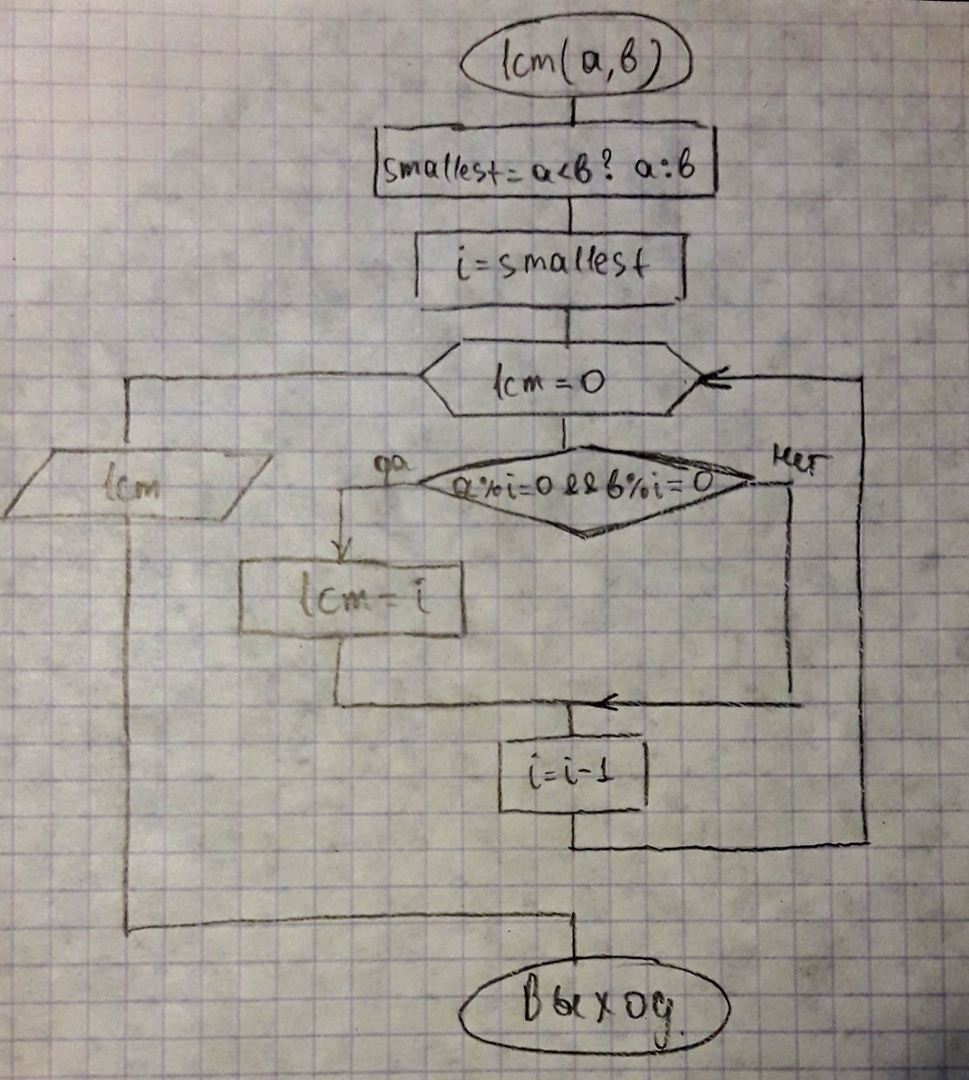 lcm(a,b)
smallest = a<b? a:b
i=smallest
lcm = 0
да
a%i=0 && b%i=0
нет
lcm
lcm = i
i=i-1
Выход